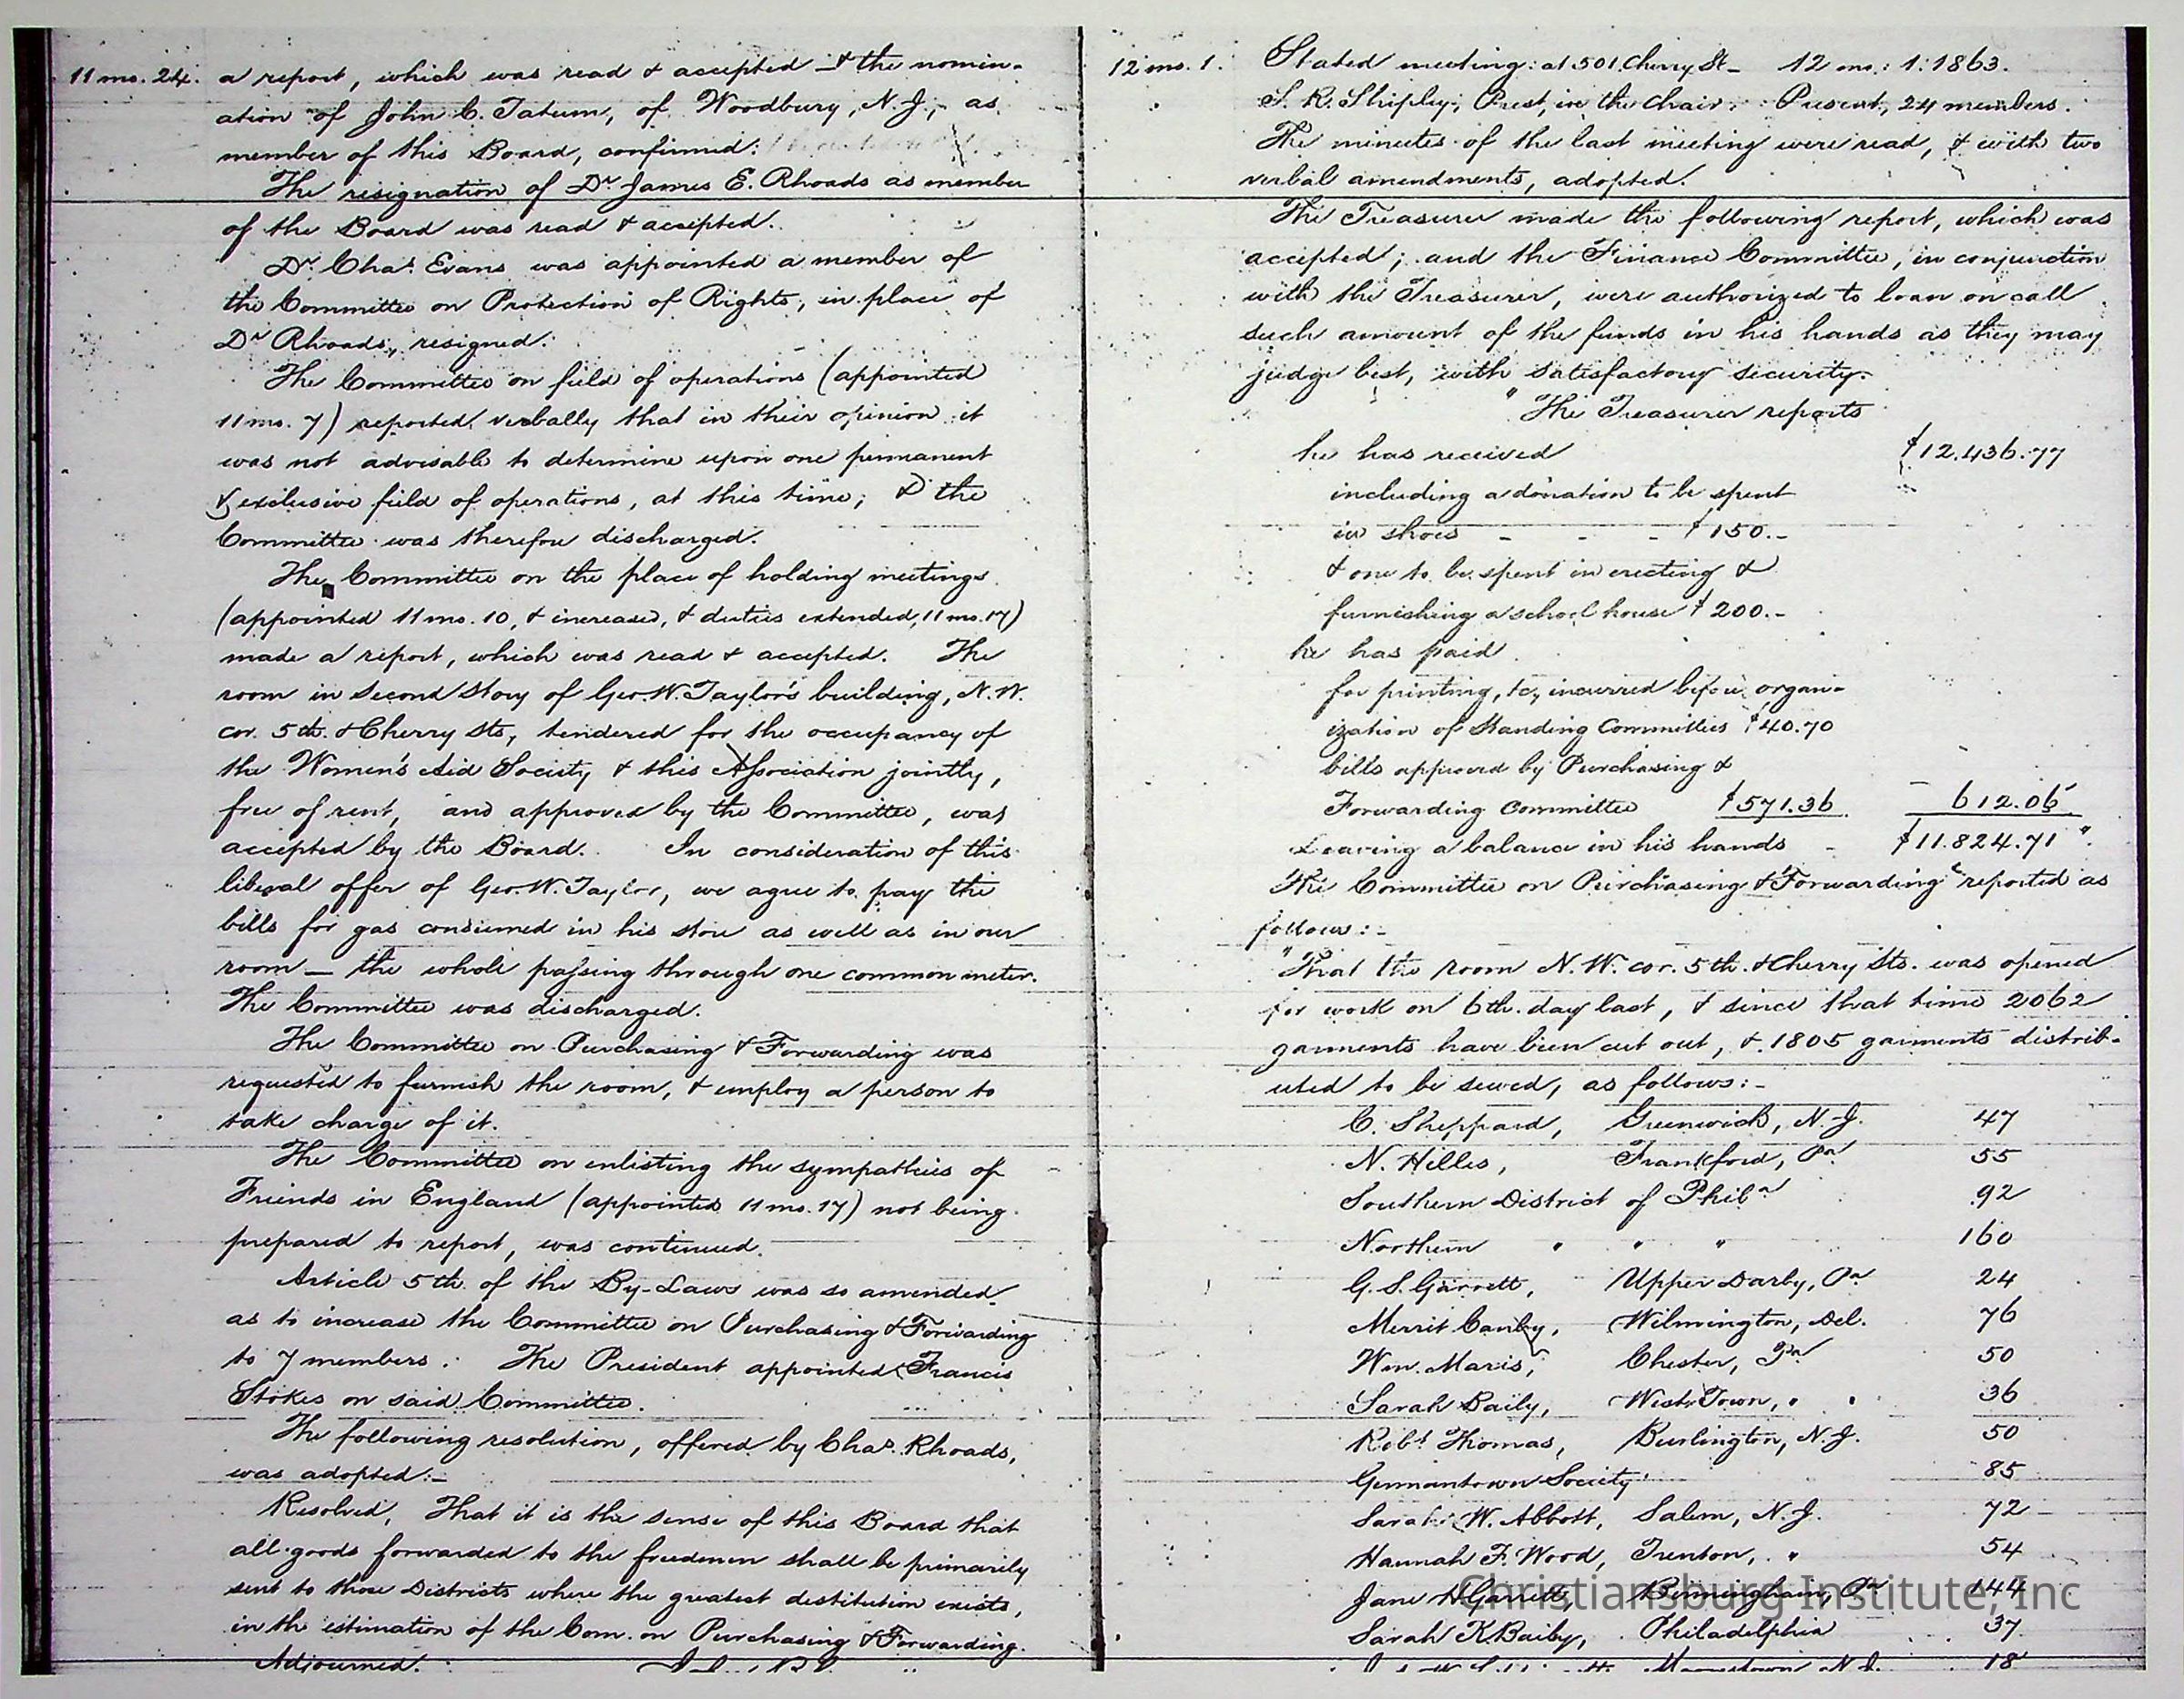 11 mo. 24. a report, which was read & accepted & the nomin-
ation of John C. Tatum, of Woodbury, N.J., as
member of this Board, confirmed.
The resignation of Dr James E. Rhoads as member
of the Board was read & accepted.
Dr. Chas. Evans was appointed a member of
the Committee on Protection of Rights, in place of
Dr Rhoads, resigned.
The Committee on field of operations (appointed
11 mo. 7) reported verbally that in their opinion it
was not advisable to determine upon one permanent
& exclusive field of operations, at this time; & the
Committee was therefore discharged.
The Committee on the place of holding meetings
(appointed 11 mo. 10, & increased, & duties extended, 11 mo. 17)
made a report, which was read & accepted. The
room in second story of Geo. W. Taylor's building, N.W.
cor. 5th. & Cherry Sts, tendered for the occupancy of
the Women's Aid Society & this Association jointly,
free of rent, and approved by the Committee, was
accepted by the Board. In consideration of this
liberal offer of Geo. W. Taylor, we agree to pay the
bills for gas consumed in his store as well as in our
room — the whole passing through one common meter.
The Committee was discharged.
The Committee on Purchasing & Forwarding was
requested to furnish the room, & employ a person to
take charge of it.
The Committee on enlisting the sympathies of
Friends in England (appointed 11 mo. 17) not being
prepared to report, was continued.
Article 5th. of the By-Laws was so amended
as to increase the Committee on Purchasing & Forwarding
to 7 members. The President appointed Francis
Stokes on said Committee.
The following resolution, offered by Chas. Rhoads,
was adopted:—
Resolved, That it is the sense of this Board that
all goods forwarded to the freedmen shall be primarily
sent to those Districts where the greatest destitution exists,
in the estimation of the Com. on Purchasing & Forwarding.
Adjourned.
12 mo. 1. Stated meeting: at 501 Cherry St— 12 mo: 1: 1863.
S. R. Shipley, Prest, in the Chair. Present, 24 members.
The minutes of the last meeting were read, & with two
verbal amendments, adopted.
The Treasurer made the following report, which was
accepted; and the Finance Committee, in conjunction
with the Treasurer, were authorized to loan on call
such amount of the funds in his hands as they may
judge best, with satisfactory security.
"The Treasurer reports
he has received $12.436.77
including a donation to be spent
in shoes - - - $150.-
& one to be spent in erecting &
furnishing a school house $200.-
he has paid
for printing, &c, incurred before organ-
ization of Standing Committees $40.70
bills approved by Purchasing &
Forwarding Committee $571.36 612.06
Leaving a balance in his hands - $11.824.71".
The Committee on Purchasing & Forwarding reported as
follows:-
"That the room N.W. cor. 5th. & Cherry Sts. was opened
for work on 6th. day last, & since that time 2062
garments have been cut out, & 1805 garments distrib-
uted to be sewed, as follows:-
C. Sheppard, Greenwich, N.J. 47
N. Hilles, Frankford, Pa 55
Southern District of Phila 92
Northern " " " 160
G. S. Garrett, Upper Darby, Pa 24
Merrit Canby, Wilmington, Del. 76
Wm. Maris, Chester, Pa 50
Sarah Baily, West Town, " 36
Robt Thomas, Burlington, N.J. 50
Germantown Society 85
Sarah W. Abbott, Salem, N.J. 72
Hannah F. Wood, Trenton, " 54
Jane H Garrett, Birmingham, Pa 144
Sarah K. Baily, Philadelphia 37
Moorestown N.J. 18
Christiansburg Institute, Inc